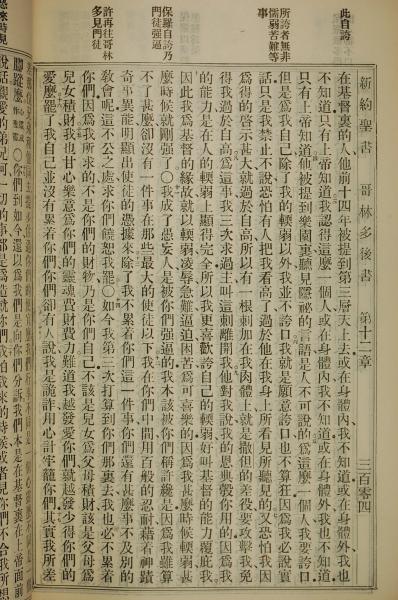 新約聖書 哥林多後書 第十二章 三百零四
此自誇
所誇者無非
儒弱苦難等
事
保羅自誇乃
門徒强逼
許再往哥林
多見門徒
在基督裏的人、他前十四年被提到第三層天上去或在身體內我不知道或在身體外我也
不知道只有上帝知道我認得這麼一個人或在身體內我不知道或在身體外我也不知道
只有上帝知道他被提到樂園裏聽見隱祕的言語是人不可說的爲這麼一個人我要誇口
但是爲我自己除了我的輭弱以外我並不誇口我就是願意誇口也不算狂因爲我必說實
話只是我禁止不說恐怕有人把我看高了過於他在我身上所看見所聽見的又恐怕我因
爲得的啓示甚大就過於自高所以有一根刺加在我肉體上就是撒但的差役要攻擊我免
得我過於自高爲這事我三次求過主叫這刺離開我他對我說我的恩典彀你用的因爲我
的能力是在人的輭弱上顯得完全所以我更喜歡誇自己的輭弱好叫基督的能力覆庇我
因此我爲基督的緣故就以輭弱凌辱急難逼迫困苦爲可喜樂的因爲我甚麼時候輭弱甚
麼時候就剛强了○我成了愚妄人是被你們强逼的我本該被你們稱許纔是因爲我雖算
不了甚麼卻沒有一件事在那些最大的使徒以下我在你們中間用百般的忍耐藉着神蹟
奇事異能明顯出使徒的憑據來除了我不累着你們這一件事你們還有甚麼事不及別的
教會呢這不公之處求你們饒恕我罷○如今我第三次打算到你們那裏去我也必不累着
你們因爲我所求的不是你們的財物乃是你們自己不該是兒女爲父母積財該是父母爲
兒女積財我也甘心樂意爲你們的靈魂費財費力難道我越發愛你們就越發少得你們的
愛麼罷了我自己並沒有累着你們你們卻有人說我是詭詐用心計牢籠你們其實我所差
腳蹤麼○你們到如今還以爲我們是向你們分訴我們本是在基督裏在上帝面前
說話親愛的弟兄阿一切的事都是爲造就你們我怕我來的時候或者見你們不合我所想